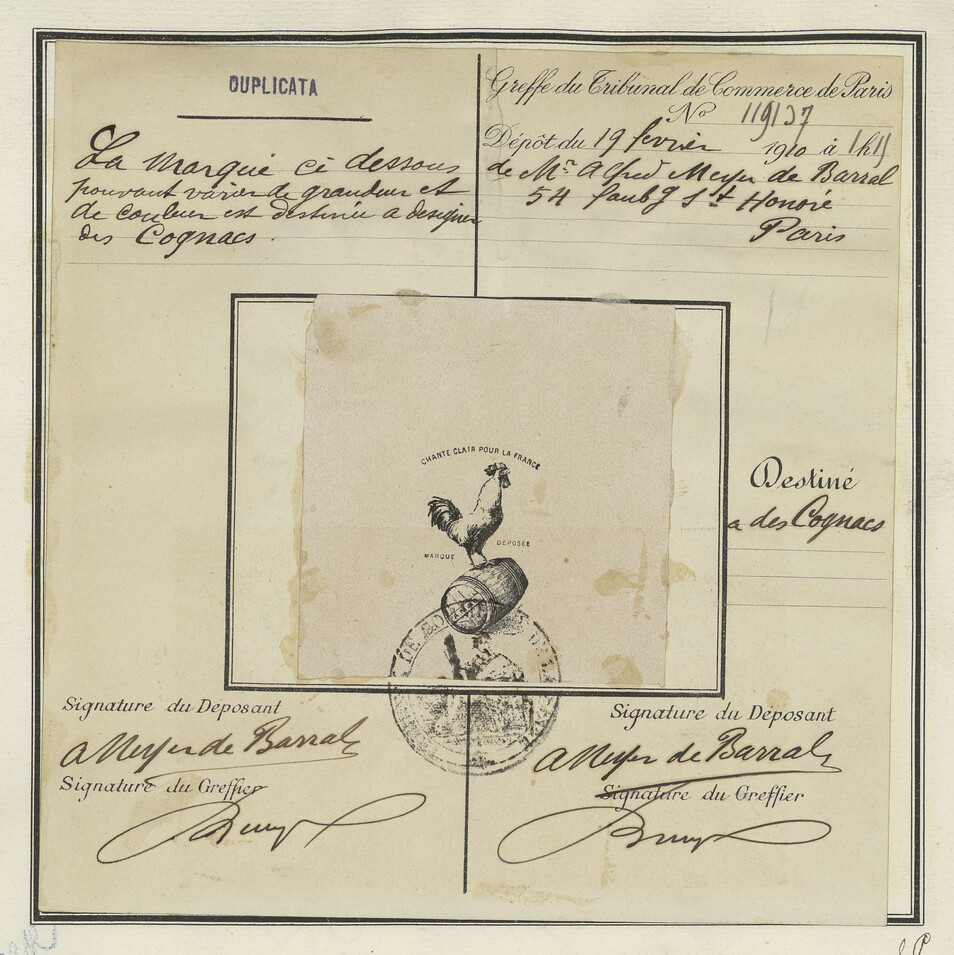 DUPLICATA
La marque ci dessous
pouvant varier de grandeur et
de couleur est destinée a designer
des Cognacs.
Greffe du Tribunal de Commerce de Paris
No 119137
Dépôt du 19 fevrier 1910 à 1h
de Mr Alfred Meyer de Barral
54 faubg St Honoré
Paris
CHANTE CLAIR POUR LA FRANCE
MARQUE DEPOSÉE
Destiné
a des Cognacs
Signature du Déposant
A Meyer de Barral
Signature du Greffier
Signature du Déposant
A Meyer de Barral
Signature du Greffier